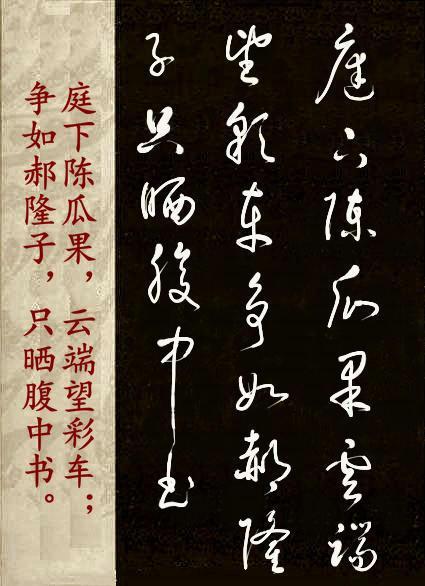 庭下陈瓜果云端
望彩车争如郝隆
子只晒腹中书
庭下陈瓜果，云端望彩车；
争如郝隆子，只晒腹中书。